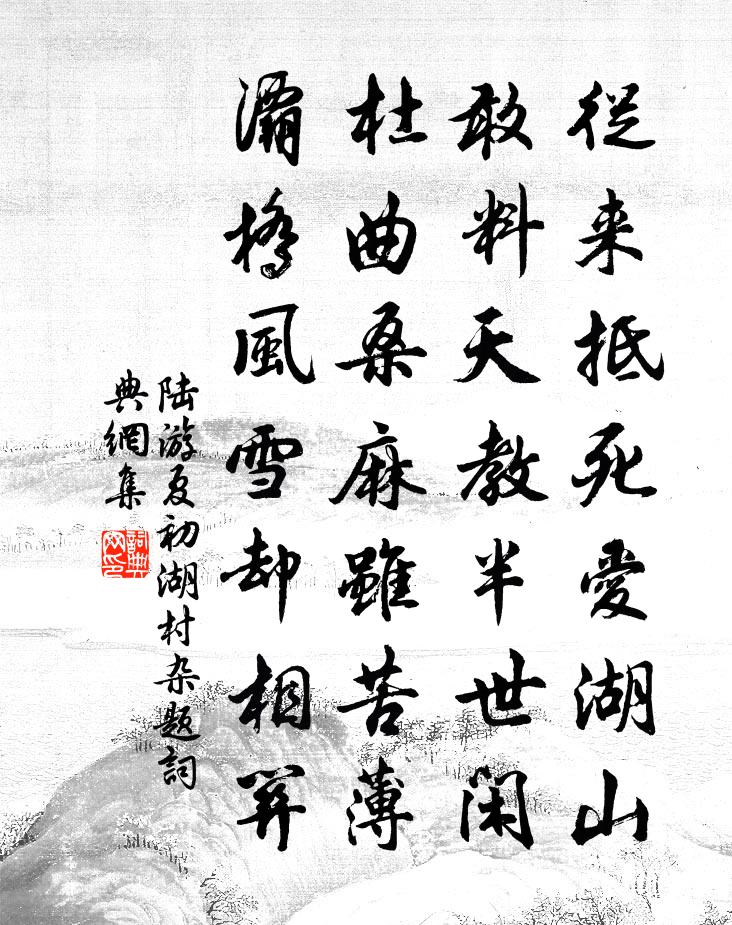 從来抵死愛湖山
敢料天教半世閑
杜曲桑麻雖苦薄
灞橋風雪却相關
陆游夏初湖村杂题詞
典網集
詞典
网印